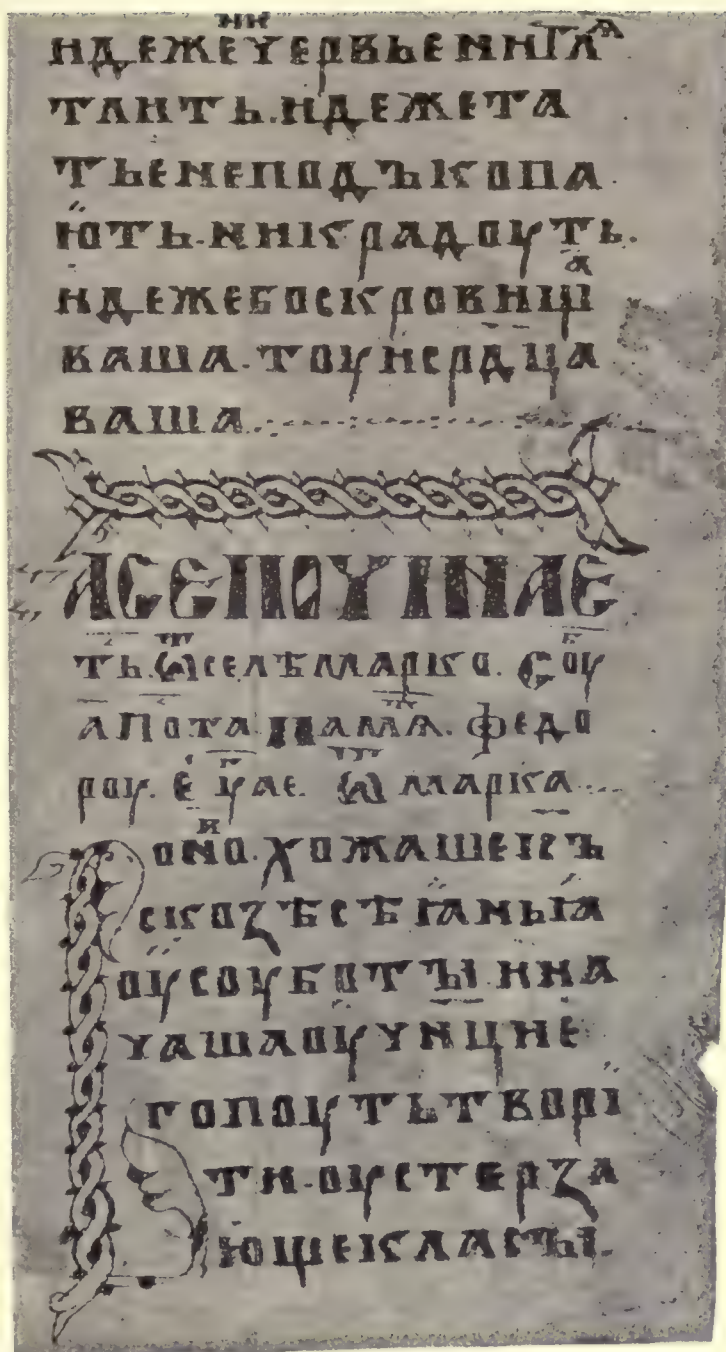 идежеꙋервьенніꙗ
тлить·идежета
тьенеподъкопа
ють·никрадоуть·
идежебоскровищⷶ
ваша·тоуисрдца
ваша
АСЕПОУІНАЕ
ть·ѿселѣмарко·соуⷠ
апотапамѧ·федо
роу·еуⷢає·ѿмарка
оно·хожашеісъ
скозѣсѣꙗньꙗ
оусоуботъі·ина
ꙋашаоуꙋнцие
гопоутьтворі
ти·оустерза
ющекласъі·